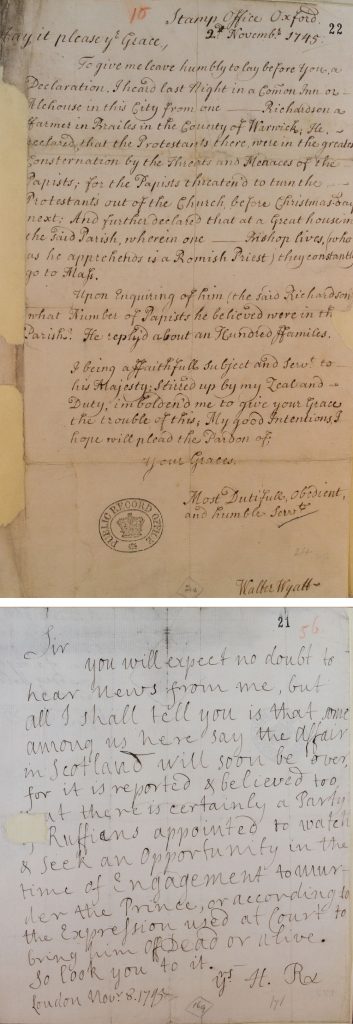 16
22
Stamp Office Oxford.
2d. Novembr. 1745.
May it please yr. Grace,
To give me leave humbly to lay before You, a
Declaration. I heard last Night in a Com̄on Inn or
Alehouse in this City from one — Richardson a
ffarmer in Brailes in the County of Warwick; He
declared, that the Protestants there, were in the greatest
Consternation by the Threats and Menaces of the
Papists; for the Papists threatend to turn the
Protestants out of the Church, before Christmas day
next; And further declared that at a Great house in
the said Parish, wherein one — Bishop lives, (who
as he apprehends is a Romish Priest) they constantly
go to Mass.
Upon Enquiring of him (the said Richardson)
what Number of Papists he believed were in the
Parish? He reply'd about an Hundred ffamiles.
I being a ffaithfull Subject and Servt. to
his Majesty; Stired up by my Zeal and
Duty, imbolden'd me to give your Grace
the trouble of this; My good Intentions, I
hope will plead the Pardon of;
Your Graces.
Most Dutifull, Obedient,
and humble Servt.
PUBLIC RECORD OFFICE
Walter Wyatt
21
56
Sir
you will expect no doubt to
hear news from me, but
all I shall tell you is that some
among us here say the affair
in Scotland will soon be over,
for it is reported & believed too,
that there is certainly a Party
Ruffians appointed to watch
& seek an Opportunity in the
time of Engagement to mur-
der the Prince, or according to
the Expression used at Court to
bring him of Dead or alive.
So look you to it.
yrs H. Rx
London Novr. 8. 1745
169
171